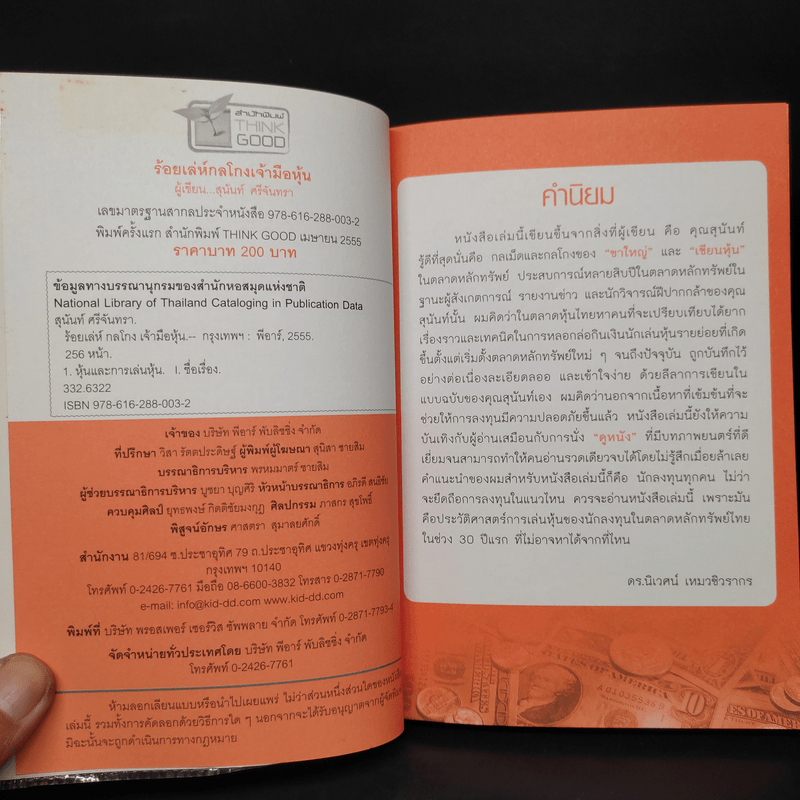 สำนักพิมพ์
THINK
GOOD
ร้อยเล่ห์กลโกงเจ้ามือหุ้น
ผู้เขียน...สุนันท์ ศรีจันทรา
เลขมาตรฐานสากลประจำหนังสือ 978-616-288-003-2
พิมพ์ครั้งแรก สำนักพิมพ์ THINK GOOD เมษายน 2555
ราคาบาท 200 บาท
ข้อมูลทางบรรณานุกรมของสำนักหอสมุดแห่งชาติ
National Library of Thailand Cataloging in Publication Data
สุนันท์ ศรีจันทรา.
ร้อยเล่ห์ กลโกง เจ้ามือหุ้น.-- กรุงเทพฯ : พีอาร์, 2555.
256 หน้า.
1. หุ้นและการเล่นหุ้น. I. ชื่อเรื่อง.
332.6322
ISBN 978-616-288-003-2
เจ้าของ บริษัท พีอาร์ พับลิชชิ่ง จำกัด
ที่ปรึกษา วิสา รัตตประดิษฐ์ ผู้พิมพ์ผู้โฆษณา สุนิสา ชายสิม
บรรณาธิการบริหาร พรหมมาตร์ ชายสิม
ผู้ช่วยบรรณาธิการบริหาร บูชยา บุญศิริ หัวหน้าบรรณาธิการ อภิรดี
ควบคุมศิลป์ ยุทธพงษ์ กิตติชัยมงกุฎ ศิลปกรรม ภาสกร สุขโพธิ์
พิสูจน์อักษร ศาสตรา สุมาลยศักดิ์
สำนักงาน 81/694 ซ.ประชาอุทิศ 79 ถ.ประชาอุทิศ แขวงทุ่งครุ เขตทุ่งครุ
กรุงเทพฯ 10140
โทรศัพท์ 0-2426-7761 มือถือ 08-6600-3832 โทรสาร 0-2871-7790
e-mail: info@kid-dd.com www.kid-dd.com
พิมพ์ที่ บริษัท พรอสเพอร์ เซอร์วิส ซัพพลาย จำกัด โทรศัพท์ 0-2871-7793-4
จัดจำหน่ายทั่วประเทศโดย บริษัท พีอาร์ พับลิชชิ่ง จำกัด
โทรศัพท์ 0-2426-7761
ห้ามลอกเลียนแบบหรือนำไปเผยแพร่ ไม่ว่าส่วนหนึ่งส่วนใดของหนังสือ
เล่มนี้ รวมทั้งการคัดลอกด้วยวิธีการใด ๆ นอกจากจะได้รับอนุญาตจาก
มิฉะนั้นจะถูกดำเนินการทางกฎหมาย
คำนิยม
หนังสือเล่มนี้เขียนขึ้นจากสิ่งที่ผู้เขียน คือ คุณสุนันท์
รู้ดีที่สุดนั่นคือ กลเม็ดและกลโกงของ "ขาใหญ่" และ "เซียนหุ้น"
ในตลาดหลักทรัพย์ ประสบการณ์หลายสิบปีในตลาดหลักทรัพย์ใน
ฐานะผู้สังเกตการณ์ รายงานข่าว และนักวิจารณ์ฝีปากกล้าของคุณ
สุนันท์นั้น ผมคิดว่าในตลาดหุ้นไทยหาคนที่จะเปรียบเทียบได้ยาก
เรื่องราวและเทคนิคในการหลอกล่อกินเงินนักเล่นหุ้นรายย่อยที่เกิด
ขึ้นตั้งแต่เริ่มตั้งตลาดหลักทรัพย์ใหม่ ๆ จนถึงปัจจุบัน ถูกบันทึกไว้
อย่างต่อเนื่องละเอียดลออ และเข้าใจง่าย ด้วยลีลาการเขียนใน
แบบฉบับของคุณสุนันท์เอง ผมคิดว่านอกจากเนื้อหาที่เข้มข้นที่จะ
ช่วยให้การลงทุนมีความปลอดภัยขึ้นแล้ว หนังสือเล่มนี้ยังให้ความ
บันเทิงกับผู้อ่านเสมือนกับการนั่ง "ดูหนัง" ที่มีบทภาพยนตร์ที่ดี
เยี่ยมจนสามารถทำให้คนอ่านรวดเดียวจบได้โดยไม่รู้สึกเมื่อยล้าเลย
คำแนะนำของผมสำหรับหนังสือเล่มนี้ก็คือ นักลงทุนทุกคน ไม่ว่า
จะยึดถือการลงทุนในแนวไหน ควรจะอ่านหนังสือเล่มนี้ เพราะมัน
คือประวัติศาสตร์การเล่นหุ้นของนักลงทุนในตลาดหลักทรัพย์ไทย
ในช่วง 30 ปีแรก ที่ไม่อาจหาได้จากที่ไหน
ดร.นิเวศน์ เหมวชิวรากร